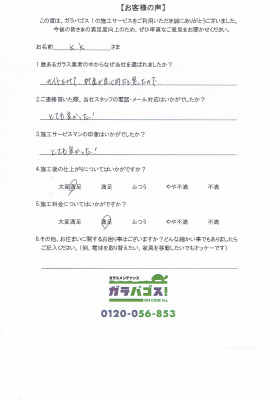 【お客様の声】
この度は、ガラパゴス！の施工サービスをご利用いただき誠にありがとうございました。
今後の皆さまの満足度向上のため、ぜひ率直なご意見をお聞かせください。
お名前 K K さま
1.数あるガラス業者の中からなぜ当社を選ばれましたか？
2.ご連絡頂いた際、当社スタッフの電話・メール対応はいかがでしたか？
とても良かった！
3.施工サービスマンの印象はいかがでしたか？
とても良かった！
4.施工後の仕上がりについてはいかがですか？
大変満足 満足 ふつう やや不満 不満
5.施工料金についてはいかがですか？
大変満足 満足 ふつう やや不満 不満
6.その他、お住まいに関するお困り事はございますか？どんな細かい事でもありましたら
ご記入ください。（例、電球を取り替えたい、家具を移動したいでもオッケーです）
ガラスメンテナンス
ガラパゴス！
ON CODE Inc.
0120-056-853